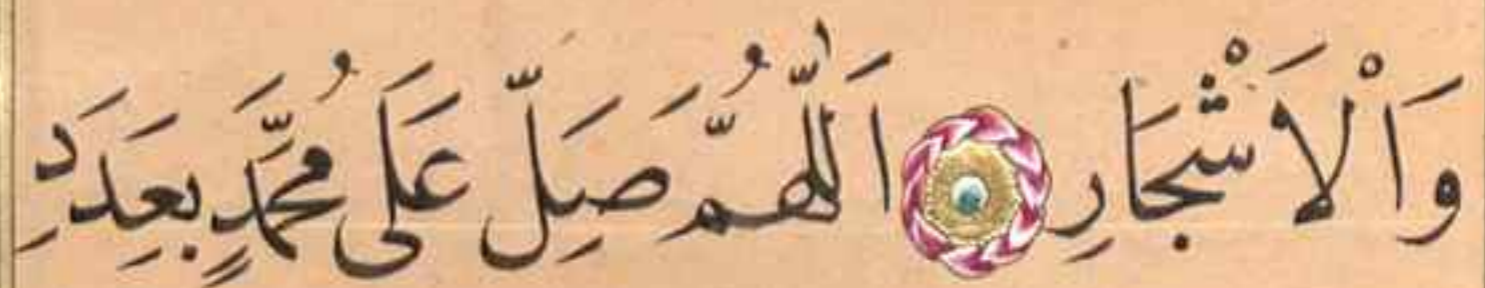 وَاْلاَشْجَارِ اَللّٰهُمَّ صَلِّ عَلَى مُحَمَّدٍ بِعَدَدِ